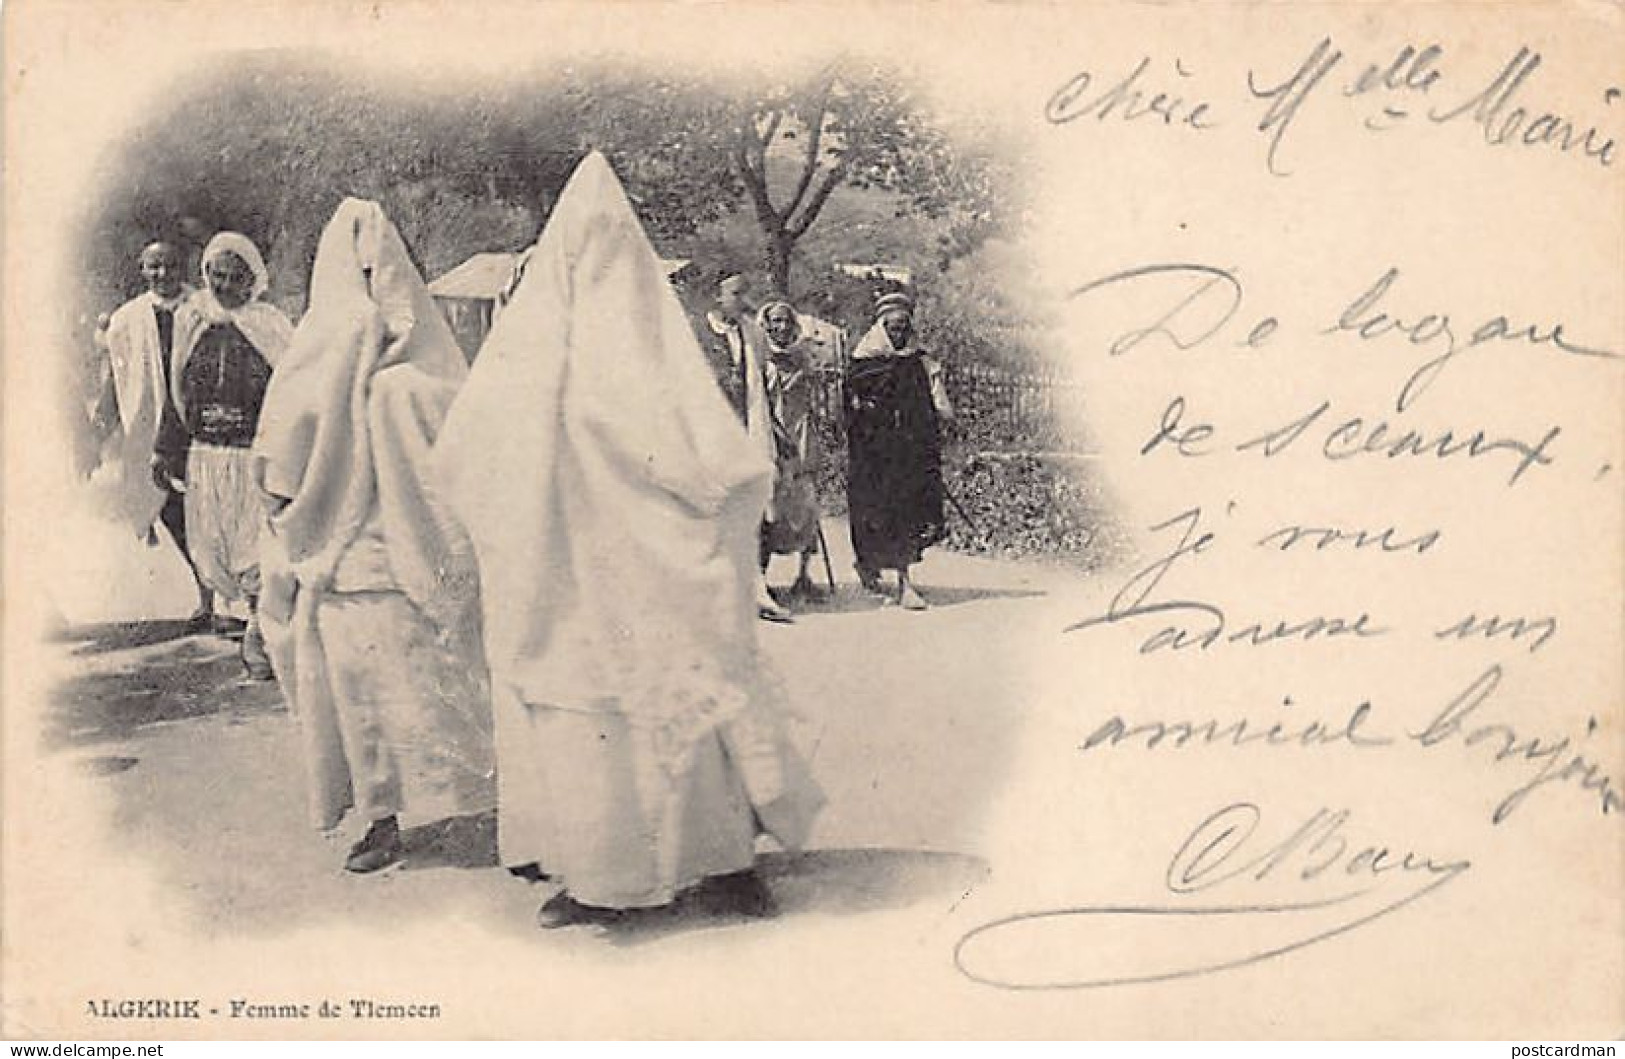 chère Melle Marie
De
de Sceaux,
je vous
adresse un
amical bonjour
ALGÉRIE - Femme de Tlemcen
www.delcampe.net
postcardman